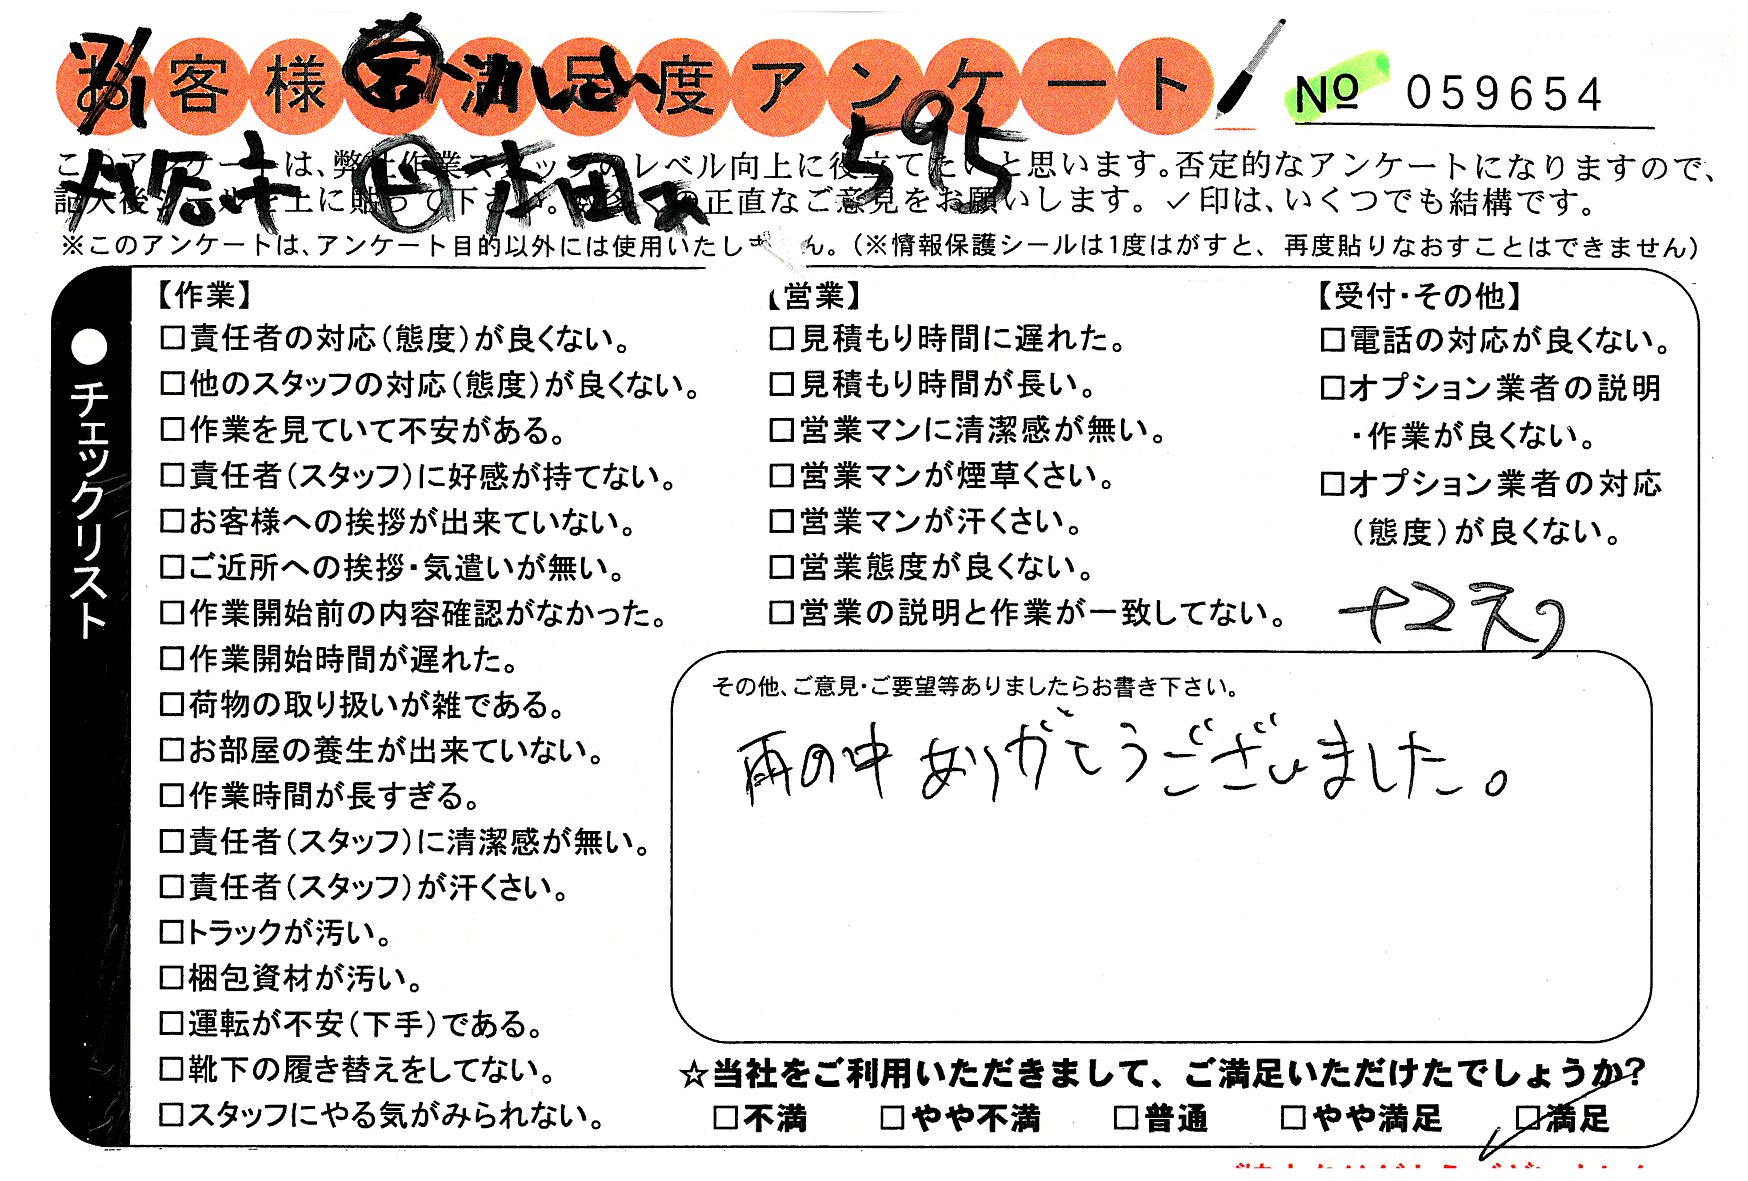 お客様満足度アンケート
No 059654
7/1
595
このアンケートは、弊社作業スタッフのレベル向上に役立てたいと思います。否定的なアンケートになりますので、
正直なご意見をお願いします。✓印は、いくつでも結構です。
※このアンケートは、アンケート目的以外には使用いたしません。(※情報保護シールは1度はがすと、再度貼りなおすことはできません)
●チェックリスト
【作業】
□責任者の対応(態度)が良くない。
□他のスタッフの対応(態度)が良くない。
□作業を見ていて不安がある。
□責任者(スタッフ)に好感が持てない。
□お客様への挨拶が出来ていない。
□ご近所への挨拶・気遣いが無い。
□作業開始前の内容確認がなかった。
□作業開始時間が遅れた。
□荷物の取り扱いが雑である。
□お部屋の養生が出来ていない。
□作業時間が長すぎる。
□責任者(スタッフ)に清潔感が無い。
□責任者(スタッフ)が汗くさい。
□トラックが汚い。
□梱包資材が汚い。
□運転が不安(下手)である。
□靴下の履き替えをしてない。
□スタッフにやる気がみられない。
【営業】
□見積もり時間に遅れた。
□見積もり時間が長い。
□営業マンに清潔感が無い。
□営業マンが煙草くさい。
□営業マンが汗くさい。
□営業態度が良くない。
□営業の説明と作業が一致してない。
【受付・その他】
□電話の対応が良くない。
□オプション業者の説明
・作業が良くない。
□オプション業者の対応
(態度)が良くない。
その他、ご意見・ご要望等ありましたらお書き下さい。
雨の中ありがとうございました。
☆当社をご利用いただきまして、ご満足いただけたでしょうか?
□不満 □やや不満 □普通 □やや満足 □満足